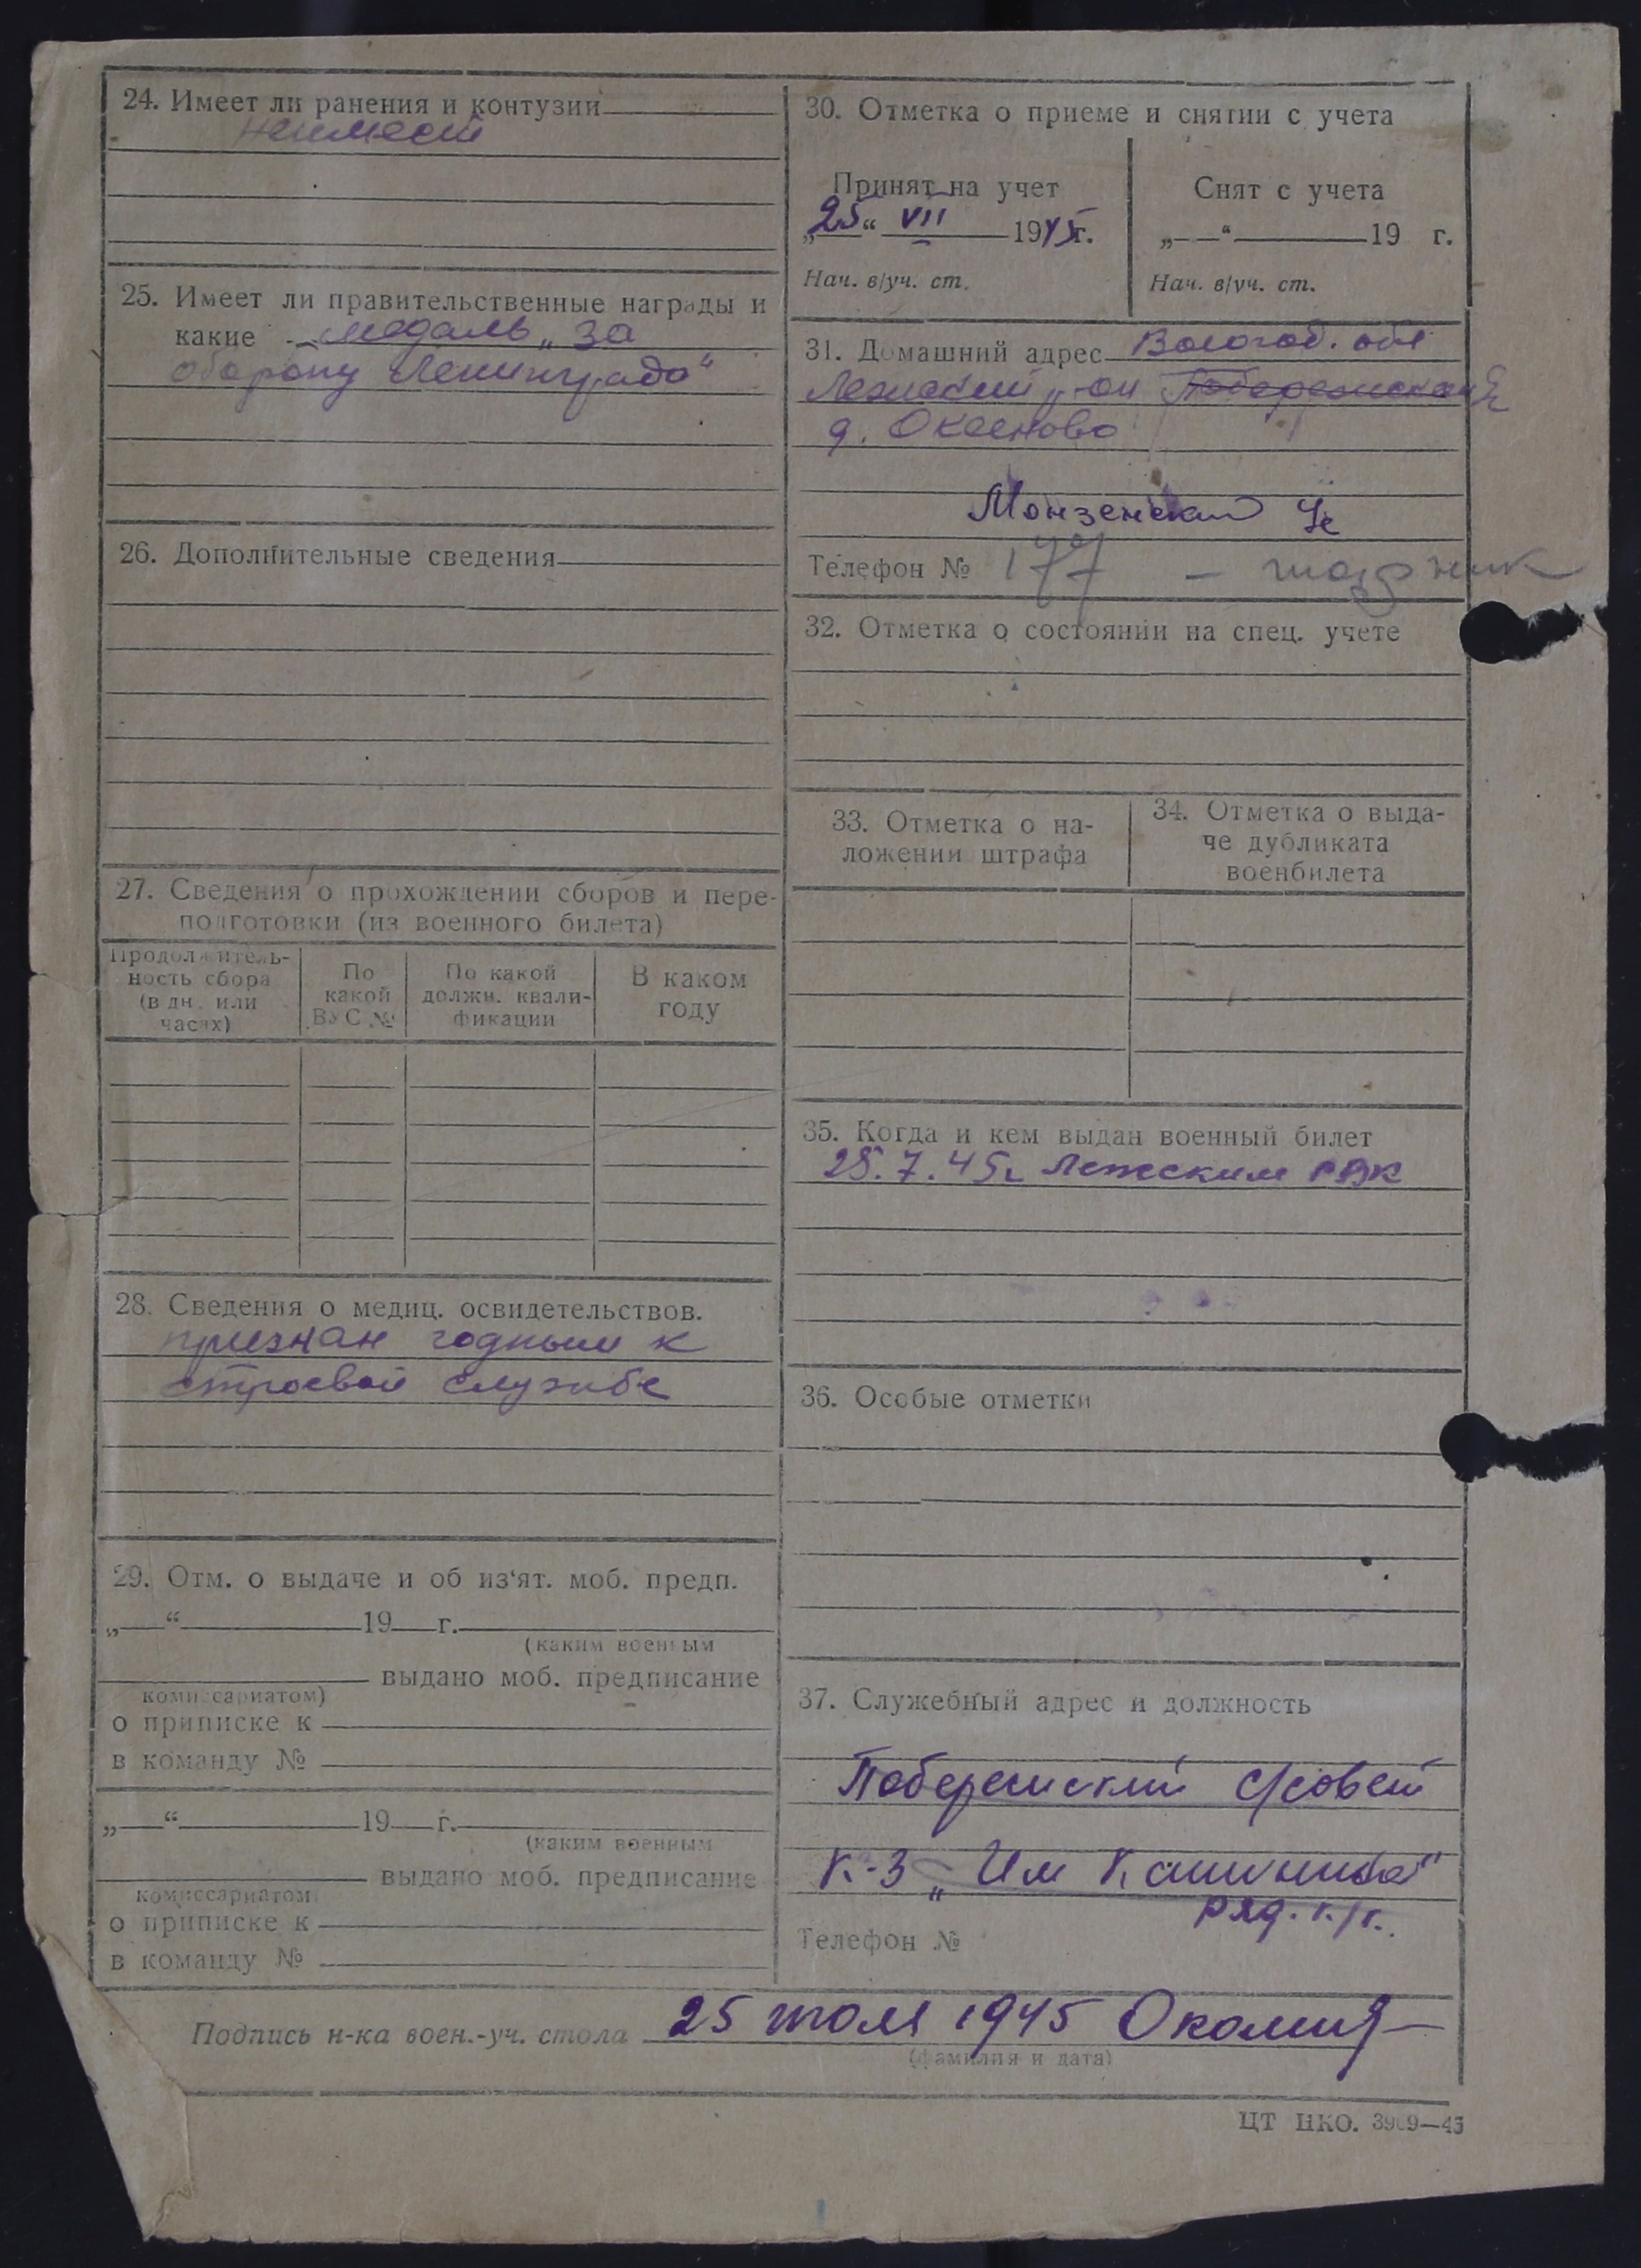 24. Имеет ли ранения и контузии
неимеет
25. Имеет ли правительственные награды и
какие медаль „За
оборону Ленинграда“
26. Дополнительные сведения
27. Сведения о прохождении сборов и пере-
подготовки (из военного билета)
Продолжитель-
ность сбора
(в дн. или
часах)
По
какой
ВУС №
По какой
должн. квали-
фикации
В каком
году
28. Сведения о медиц. освидетельствов.
признан годным к
строевой службе
29. Отм. о выдаче и об из‘ят. моб. предп.
„ “ 19 г.
(каким военным
выдано моб. предписание
комиссариатом)
о приписке к
в команду №
„ “ 19 г.
(каким военным
выдано моб. предписание
комиссариатом
о приписке к
в команду №
30. Отметка о приеме и снятии с учета
Принят на учет
„25“ VII 1945г.
Нач. в/уч. ст.
Снят с учета
„ “ 19 г.
Нач. в/уч. ст.
31. Домашний адрес Вологод. обл
Лежский р-он
д. Оксеново
Монзенский
Телефон № 177
32. Отметка о состоянии на спец. учете
33. Отметка о на-
ложении штрафа
34. Отметка о выда-
че дубликата
военбилета
35. Когда и кем выдан военный билет
25.7.45г Лежским РВК
36. Особые отметки
37. Служебный адрес и должность
Побережский с/совет
к-з „Им
ряд. к/к.
Телефон №
Подпись н-ка воен.-уч. стола 25 июля 1945
(фамилия и дата)
ЦТ НКО. 3909—43